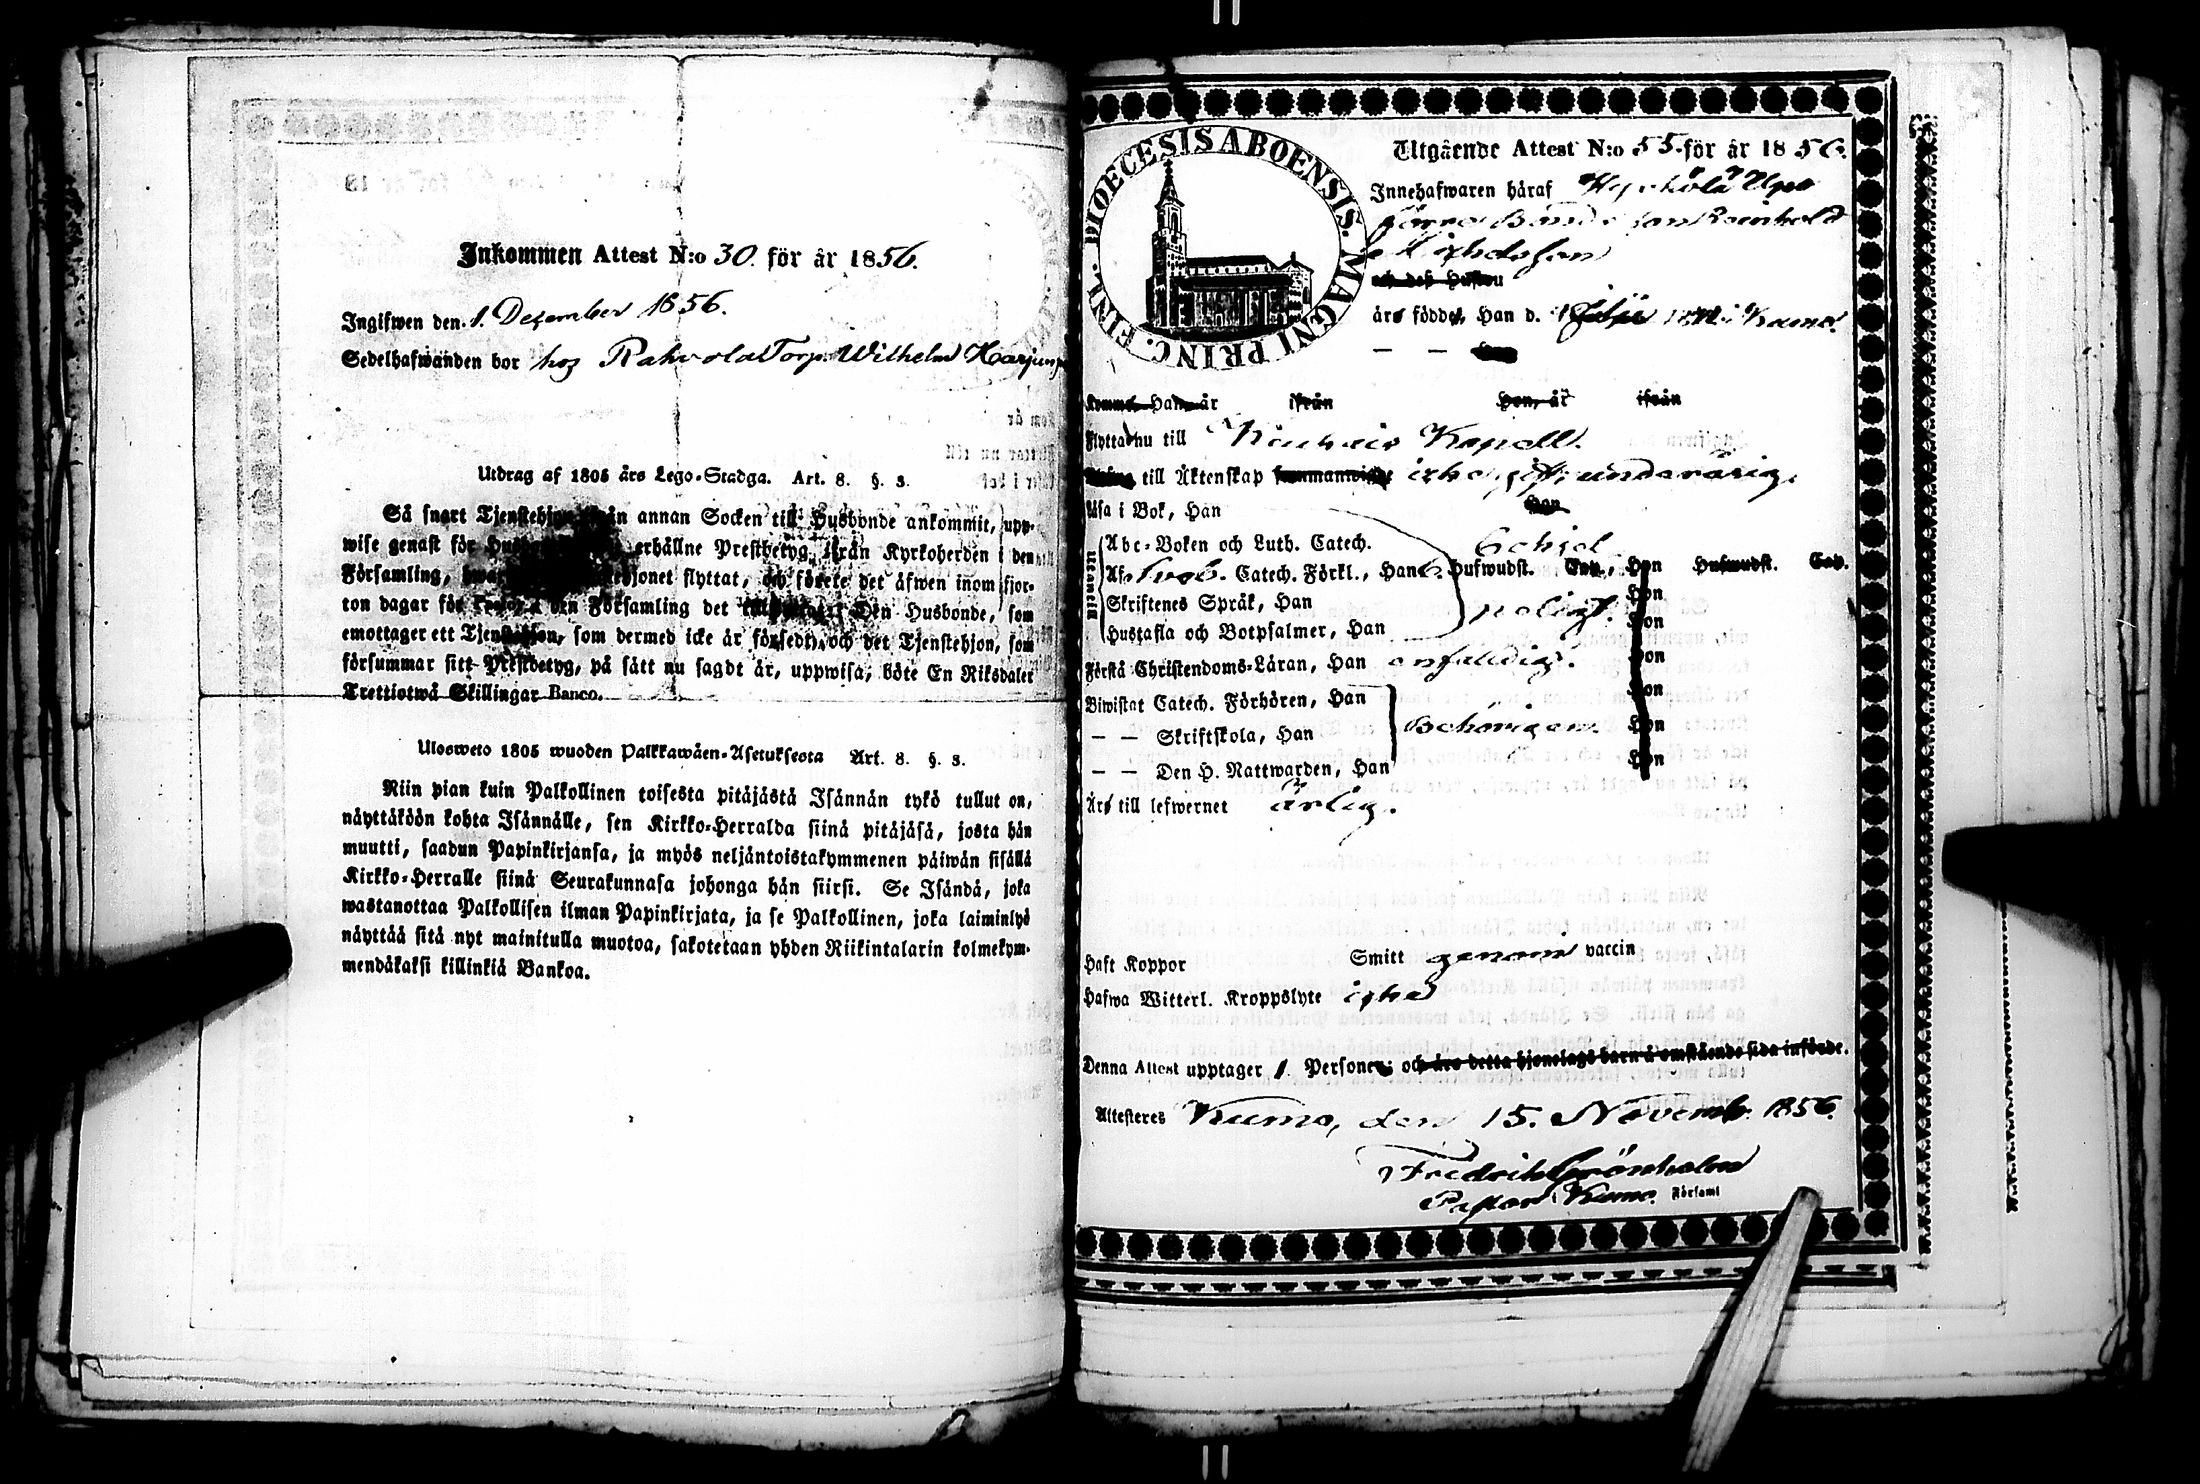 Inkommen Attest N:o 30. för år 1856.
Ingifwen den 1. December 1856.
Sedelhafwanden bor hoz Rahvola Torp. Wilhelm
Utdrag af 1805 års Lego-Stadga. Art. 8. §. 3.
Så snart Tjenstehjon från annan Socken till Husbonde ankommit, upp-
wise genast för erhållne Prestbetyg ifrån Kyrkoherden i den
Församling, flyttat, och förete det äfwen inom fjor-
ton dagar för Församling det Den Husbonde, som
emottager ett Tjenstehjon, som dermed icke är försedt, och det Tjenstehjon, som
försummar sitt Prestbetyg, på sätt nu sagdt är, uppwisa, böte En Riksdaler
Trettiotwå Skillingar Banco.
Ulosweto 1805 wuoden Palkkawäen-Asetuksesta Art. 8. §. 3.
Niin pian kuin Palkollinen toisesta pitäjästä Isännän tykö tullut on,
näyttäköön kohta Isännälle, sen Kirkko-Herralda siinä pitäjäsä, josta hän
muutti, saadun Papinkirjansa, ja myös neljäntoistakymmenen päiwän sisällä
Kirkko-Herralle siinä Seurakunnasa johonga hän siirsi. Se Isändä, joka
wastanottaa Palkollisen ilman Papinkirjata, ja se Palkollinen, joka laiminlyö
näyttää sitä nyt mainitulla muotoa, sakotetaan yhden Riikintalarin kolmekym-
mendäkaksi killinkiä Bankoa.
DIOECESIS ABOENSIS. MAGNI PRINC. FINL.
Utgående Attest N:o 55 för år 1856.
Innehafwaren häraf
Bonde son
och deß Hustru
äro födde, Han d. i Kumo.
— — Hon
Komne, Han år ifrån Hon, år ifrån
Flytta nu till Kapell.
till Äktenskap icke gift, underårig.
Läsa i Bok, Han Hon
Utantill
Abc-Boken och Luth. Catech.
Af Sveb. Catech. Förkl., Han 6. Hufwudst. Cap., Hon Hufwudst. Cap.
Skriftenes Språk, Han Hon
Hustafla och Botpsalmer, Han Hon
Förstå Christendoms-Läran, Han enfaldigt. Hon
Biwistat Catech. Förhören, Han Hon
— — Skriftskola, Han behörigen. Hon
— — Den H. Nattwarden, Han Hon
Äro till lefwernet ärlig.
Haft Koppor Smitt genom vaccin
Hafwa Witterl. Kroppslyte icke
Denna Attest upptager 1. Personer; och äro detta hjonelags barn å omstående sida införde.
Attesteres Kumo, den 15. Novemb. 1856.
Fredrik Grönholm
Pastor i Kumo. Församl